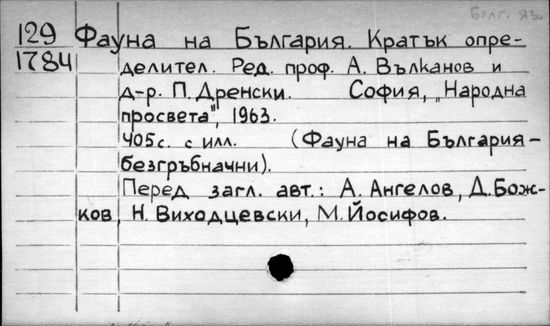 Болг. яз.
129 Фауна на България. Кратък опре-
1784 делител. Ред. проф. А. Вълканов и
д-р. П. Дренски. София, "Народна
просвета", 1963.
405 с. с илл. (Фауна на България-
безгръбначни).
Перед загл. авт.: А. Ангелов, Д. Бож-
ков, Н. Виходцевски, М. Йосифов.